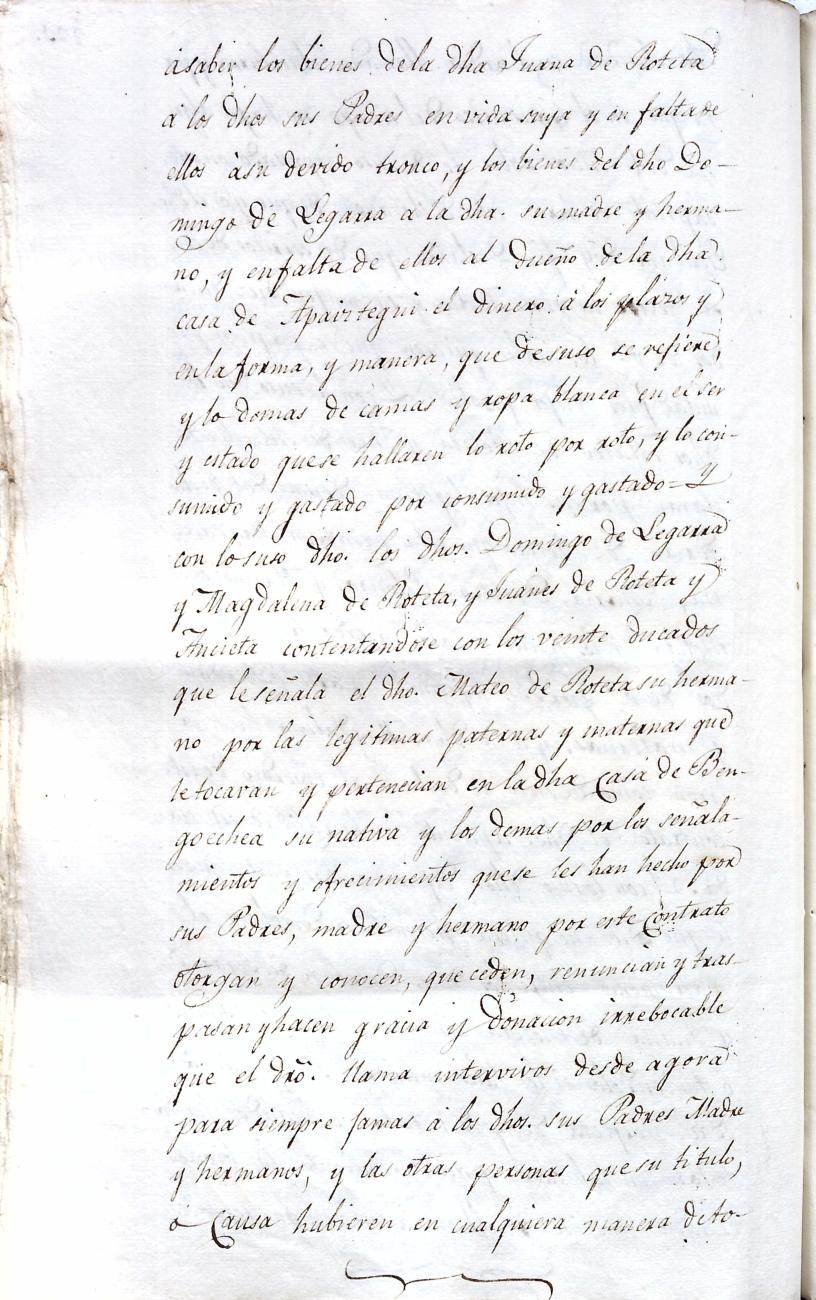 asaber los bienes dela dha Juana de Roteta
á los dhos sus Padres en vida suya y en falta de
ellos àsu devido tronco, y los bienes del dho Do-
mingo de Legarra a la dha. su madre y herma-
no, y enfalta de ellos al dueño dela dha.
casa de Apaiztegui el dinero á los plazos y
enla forma, y manera, que desuso se refiere,
y lo domas de camas y ropa blanca en el ser
y estado quese hallaren lo roto por roto, y lo con-
sumido y gastado por consumido y gastado = Y
con lo suso dho. los dhos. Domingo de Legarra
y Magdalena de Roteta, y Juanes de Roteta y
Ancieta contentandose con los veinte ducados
que le señala el dho. Mateo de Roteta su herma-
no por las legitimas paternas y maternas que
le tocavan y pertenecian en la dha Casa de Ben-
goechea su nativa y los demas por los señala-
mientos y ofrecimientos quese les han hecho por
sus Padres, madre y hermano por este Contrato
otorgan y conocen, que ceden, renuncian y tras-
pasan y hacen gracia y donacion irrebocable
que el dró. llama intervivos desde agora
para siempre jamas á los dhos. sus Padres Madre
y hermanos, y las otras personas que su titulo,
o Causa hubieren en cualquiera manera de to-